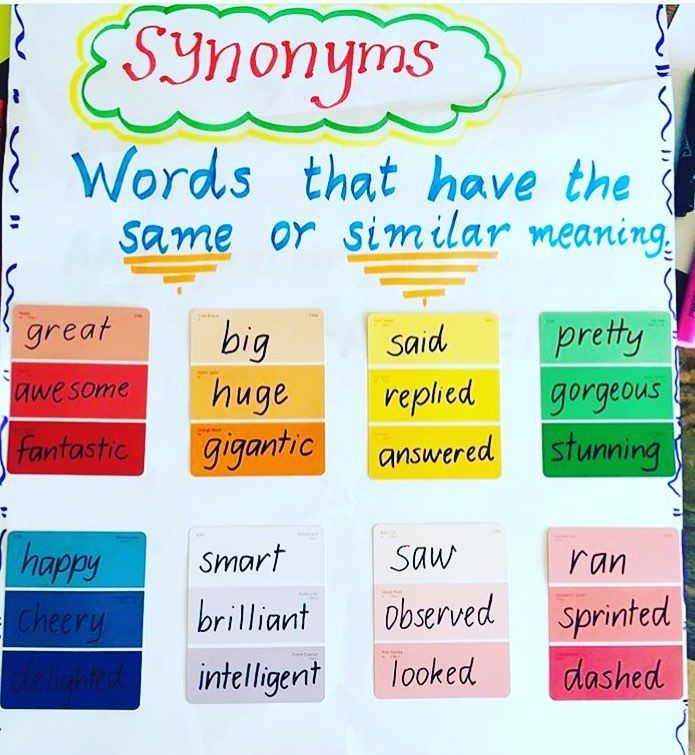 Synonyms
Words that have the
same or similar meaning.
great
awesome
fantastic
big
huge
gigantic
said
replied
answered
pretty
gorgeous
stunning
happy
cheery
delighted
smart
brilliant
intelligent
saw
observed
looked
ran
sprinted
dashed